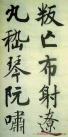 叛亡布射遼
丸嵇琴阮嘯